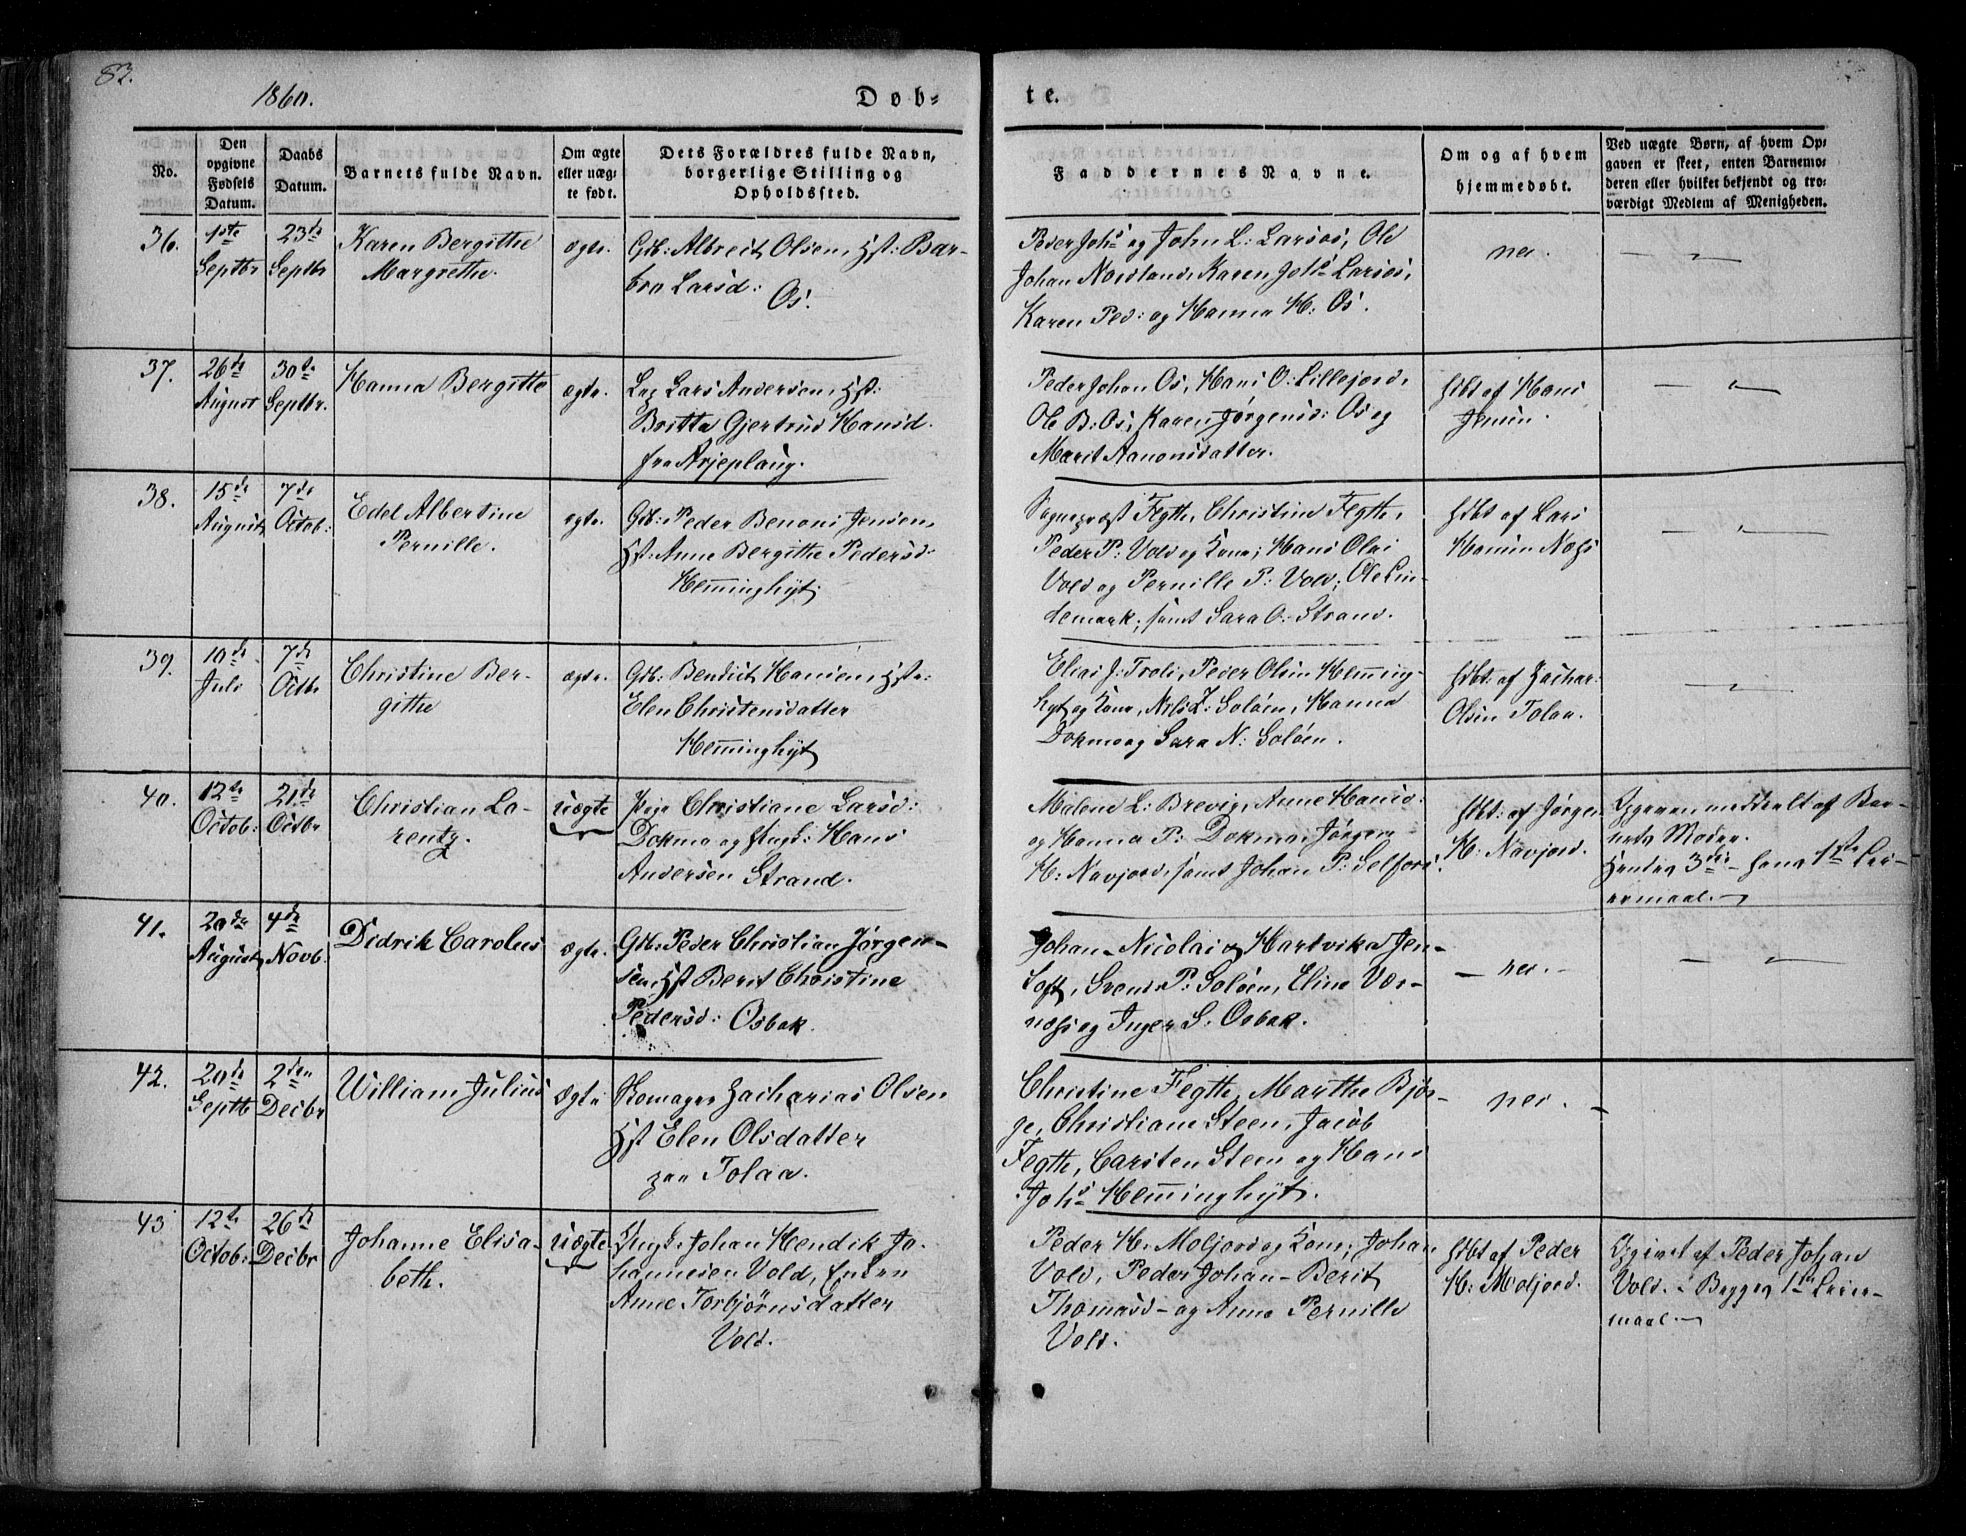 82.
1860.
Døb-
te.
No.
Den opgivne Fødsels Datum.
Daabs Datum.
Barnets fulde Navn.
Om ægte eller uægte født.
Dets Forældres fulde Navn, borgerlige Stilling og Opholdssted.
Faddernes Navne.
Om og af hvem hjemmedøbt.
Ved uægte Børn, af hvem Opgaven er skeet, enten Barnemoderen eller hvilket bekjendt og troværdigt Medlem af Menigheden.
36.
1ste
Septbr
23de
Septbr
Karen Bergithe
Margrethe.
ægte.
Gdb: Albreit Olsen, Hst: Bar-
bra Larsd:
Os.
Peder Johs og John L: Larsos, Ole
Johan Nordland, Karen Johs Larsos,
Karen Ped: og Hanna H: Os.
nei
37.
26de
August
30te
Septbr.
Hanna Bergitte
ægte.
Lap Lars Andersen, Hst:
Britta Gjertrud Hansd.
fra Arjeplaug.
Peder Johan Os, Hans O: Lillejord,
Ol B: Os, Karen Jørgensd: Os og
Marit Aanonsdatter.
hdbt af Hans
Jensen.
38.
15de
August
7de
Octob:
Edel Albertine
Pernille.
ægte.
Gdb: Peder Benoni Jensen,
Hst: Anne Bergithe Pedersd:
Hemminghyt
Sognepræst Fegth, Christine Fegth,
Peder P: Vold og Kone, Hans Olai
Vold og Pernille P: Vold, Ole Lin-
demark, samt Sara O: Strand.
hdbt af Lars
39.
10de
Juli
7de
Octbr
Christine Ber-
githe
ægte.
Gdb: Bendict Hansen, Hst:
Elen Christensdatter
Hemminghyt
Elias J: Troli, Peder Olsen Hemming-
hyt og Kone, Nils Z: Soløen, Hanna
Dokmo og Sara N: Soløen.
hdbt: af Zachar:
Olsen Tolaa.
40.
12te
Octob:
21de
Octbr
Christian La-
rentz.
uægte
Pige Christiane Larsd:
Dokmo og Ungk: Hans
Andersen Strand.
Malene L: Brevig, Anne Hansd:
og Hanna P: Dokmo, Jørgen
H: Navjord, samt Johan P: Selfors.
hdbt: af Jørgen
H: Navjord.
Opgaven meddeelt af Bar-
nets Moder.
Hendes 3die- hans 1ste Lei-
ermaal.
41.
20de
August
4de
Novb.
Didrik Carolus
ægte.
Gdb: Peder Christian Jørgen-
sen, Hst Berit Christine
Pedersd: Osbak.
Johan Nicolai og Hartvika Jen-
Svend P: Soløen, Eline Vær-
næs og Inger S: Osbak.
nei.
42.
20de
Septb
2den
Decbr
William Julius
Ægte
Skomager Zacharias Olsen
Hst Elen Olsdatter
paa Tolaa.
Christine Fegth, Marthe Bjør-
ge, Christiane Steen, Jacob
Fegth, Carsten Steen og Hans
Johs Hemminghyt.
nei.
43
12te
Octob:
26de
Decbr
Johanne Elisa-
beth.
Uægte
Ungk: Johan Hendik Jo-
hannesen Vold, Enken
Anne Torbjørnsdatter
Vold.
Peder H: Moljord og Kone, Johan
Vold, Peder Johan- Berit
Thomasd- og Anna Pernille
Vold.
hdbt af Peder
H: Moljord.
Opgivet af Peder Johan
Vold. - Begges 1ste Leier-
maal.